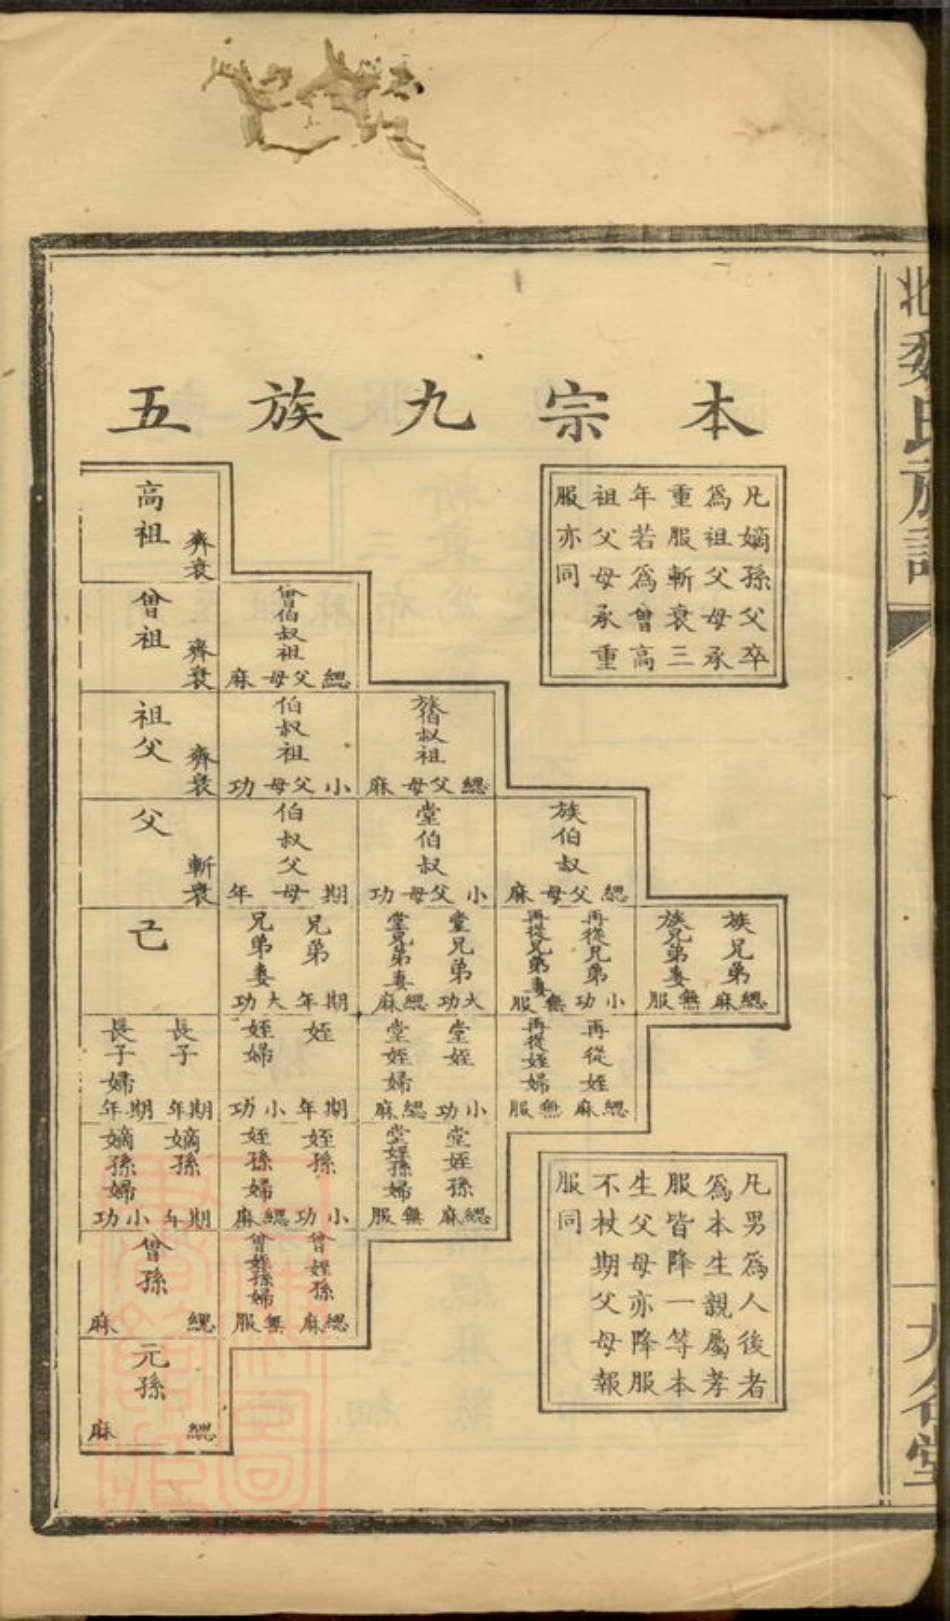 魏氏族譜
大名堂
本宗九族五
凢嫡孫父卒
爲祖父母承
重服斬衰三
年若爲曾高
祖父母承重
服亦同
高祖
齊衰
曾伯叔祖
父母
緦麻
曾祖
齊衰
族伯叔祖
父母
緦麻
伯叔祖
父母
小功
祖父
齊衰
族伯叔
父母
緦麻
堂伯叔
父母
小功
伯叔父
母
期年
父
斬衰
族兄弟
緦麻
族兄弟妻
無服
再從兄弟
小功
再從兄弟妻
無服
堂兄弟
大功
堂兄弟妻
緦麻
兄弟
期年
兄弟妻
大功
己
再從姪
緦麻
再從姪婦
無服
堂姪
小功
堂姪婦
緦麻
姪
期年
姪婦
小功
長子
期年
長子婦
期年
堂姪孫
緦麻
堂姪孫婦
無服
姪孫
小功
姪孫婦
緦麻
嫡孫
期年
嫡孫婦
小功
曾姪孫
緦麻
曾姪孫婦
無服
曾孫
緦麻
元孫
緦麻
凢男爲人後者
爲本生親屬孝
服皆降一等本
生父母亦降服
不杖期父母報
服同